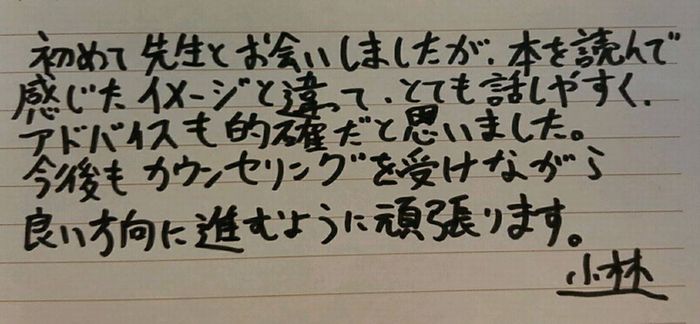 初めて先生とお会いしましたが、本を読んで
感じたイメージと違って、とても話しやすく、
アドバイスも的確だと思いました。
今後もカウンセリングを受けながら
良い方向に進むように頑張ります。
小林